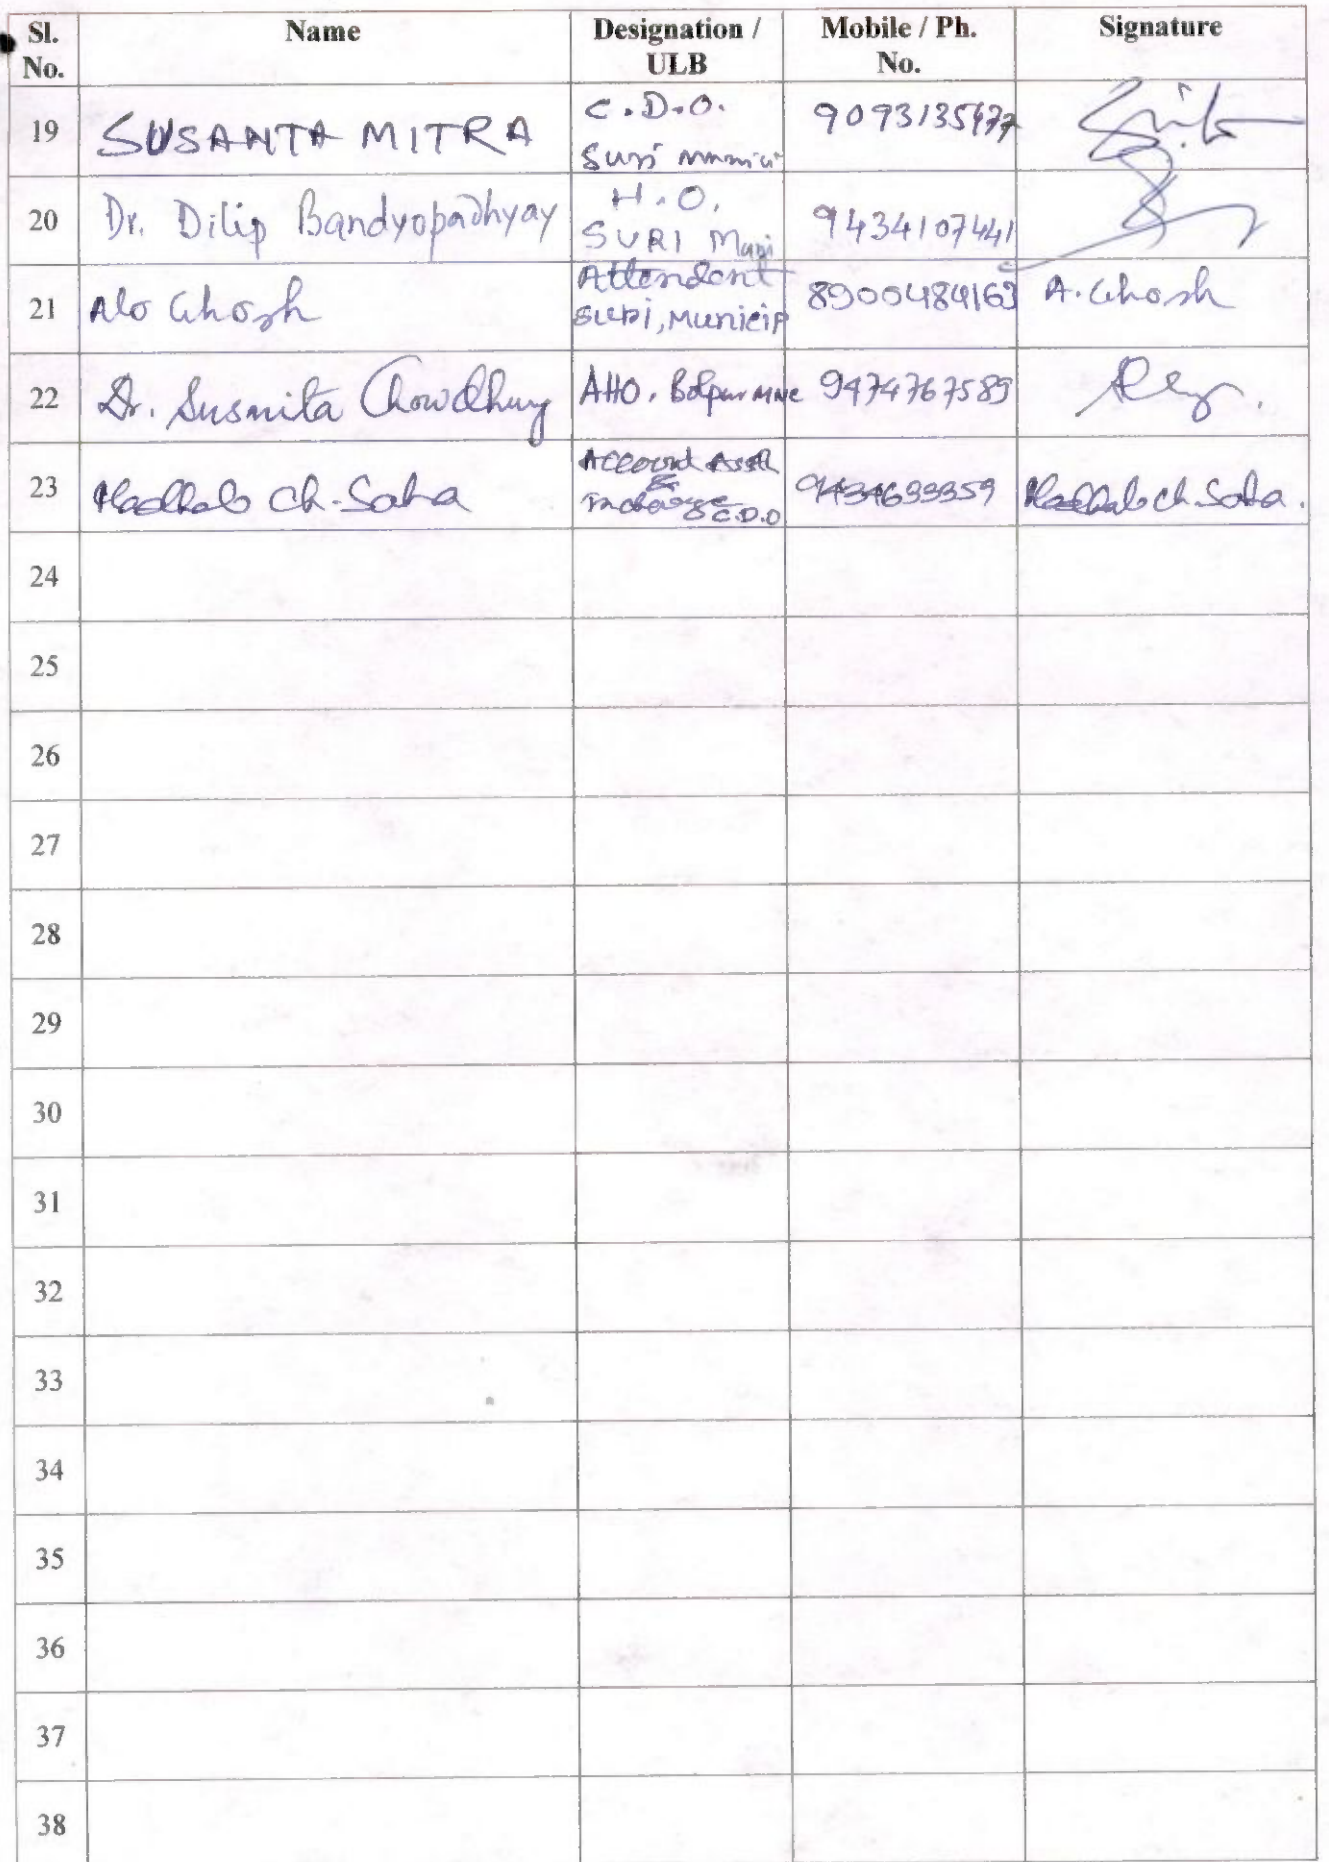 Sl. No. Name Designation / ULB Mobile / Ph. No. Signature
19 SUSANTA MITRA C.D.O. Suri
20 Dr. Dilip Bandyopadhyay H.O. SURI Muni 9434107441
21 Alo Ghosh Attendent Suri, Municip A. Ghosh
22 Dr. Susmita Chowdhury AHO, Bolpur 9474767589
23 Madhab Ch. Saha Account Asstt & Incharge C.D.O 9434633359 Madhab Ch. Saha.
24
25
26
27
28
29
30
31
32
33
34
35
36
37
38